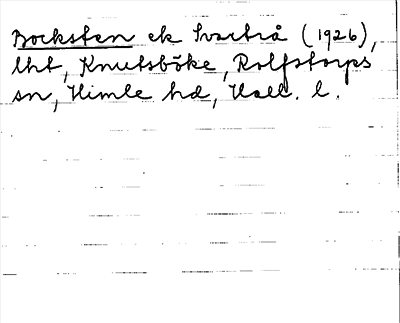 Bocksten ek Svartrå (1926),
lht, Knutsböke, Rolfstorps
sn, Himle hd, Hall. l.